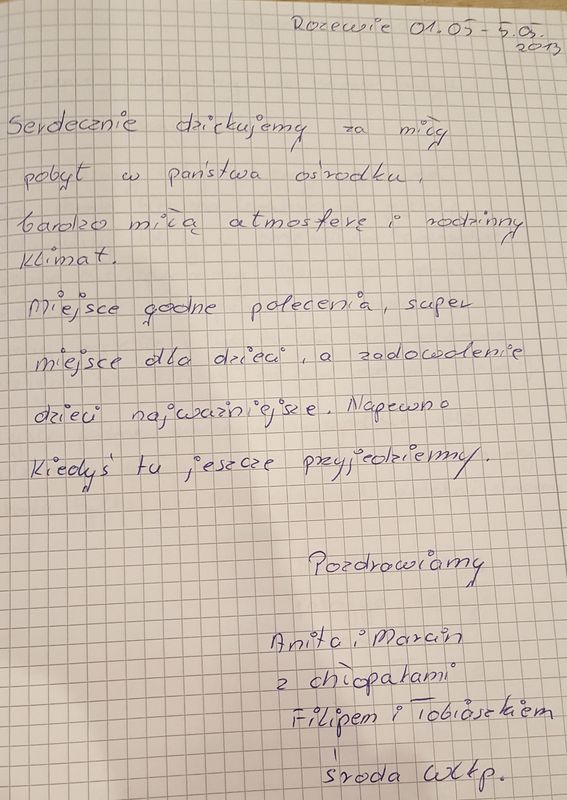 Rozewie 01.05 - 5.05.
2013
Serdecznie dziękujemy za miły
pobyt w państwa ośrodku,
bardzo miłą atmosferę i rodzinny
klimat.
Miejsce godne polecenia, super
miejsce dla dzieci, a zadowolenie
dzieci najważniejsze. Napewno
kiedyś tu jeszcze przyjedziemy.
Pozdrawiamy
Anita i Marcin
z chłopakami
Filipem i Tobiaszkiem
Środa Wlkp.